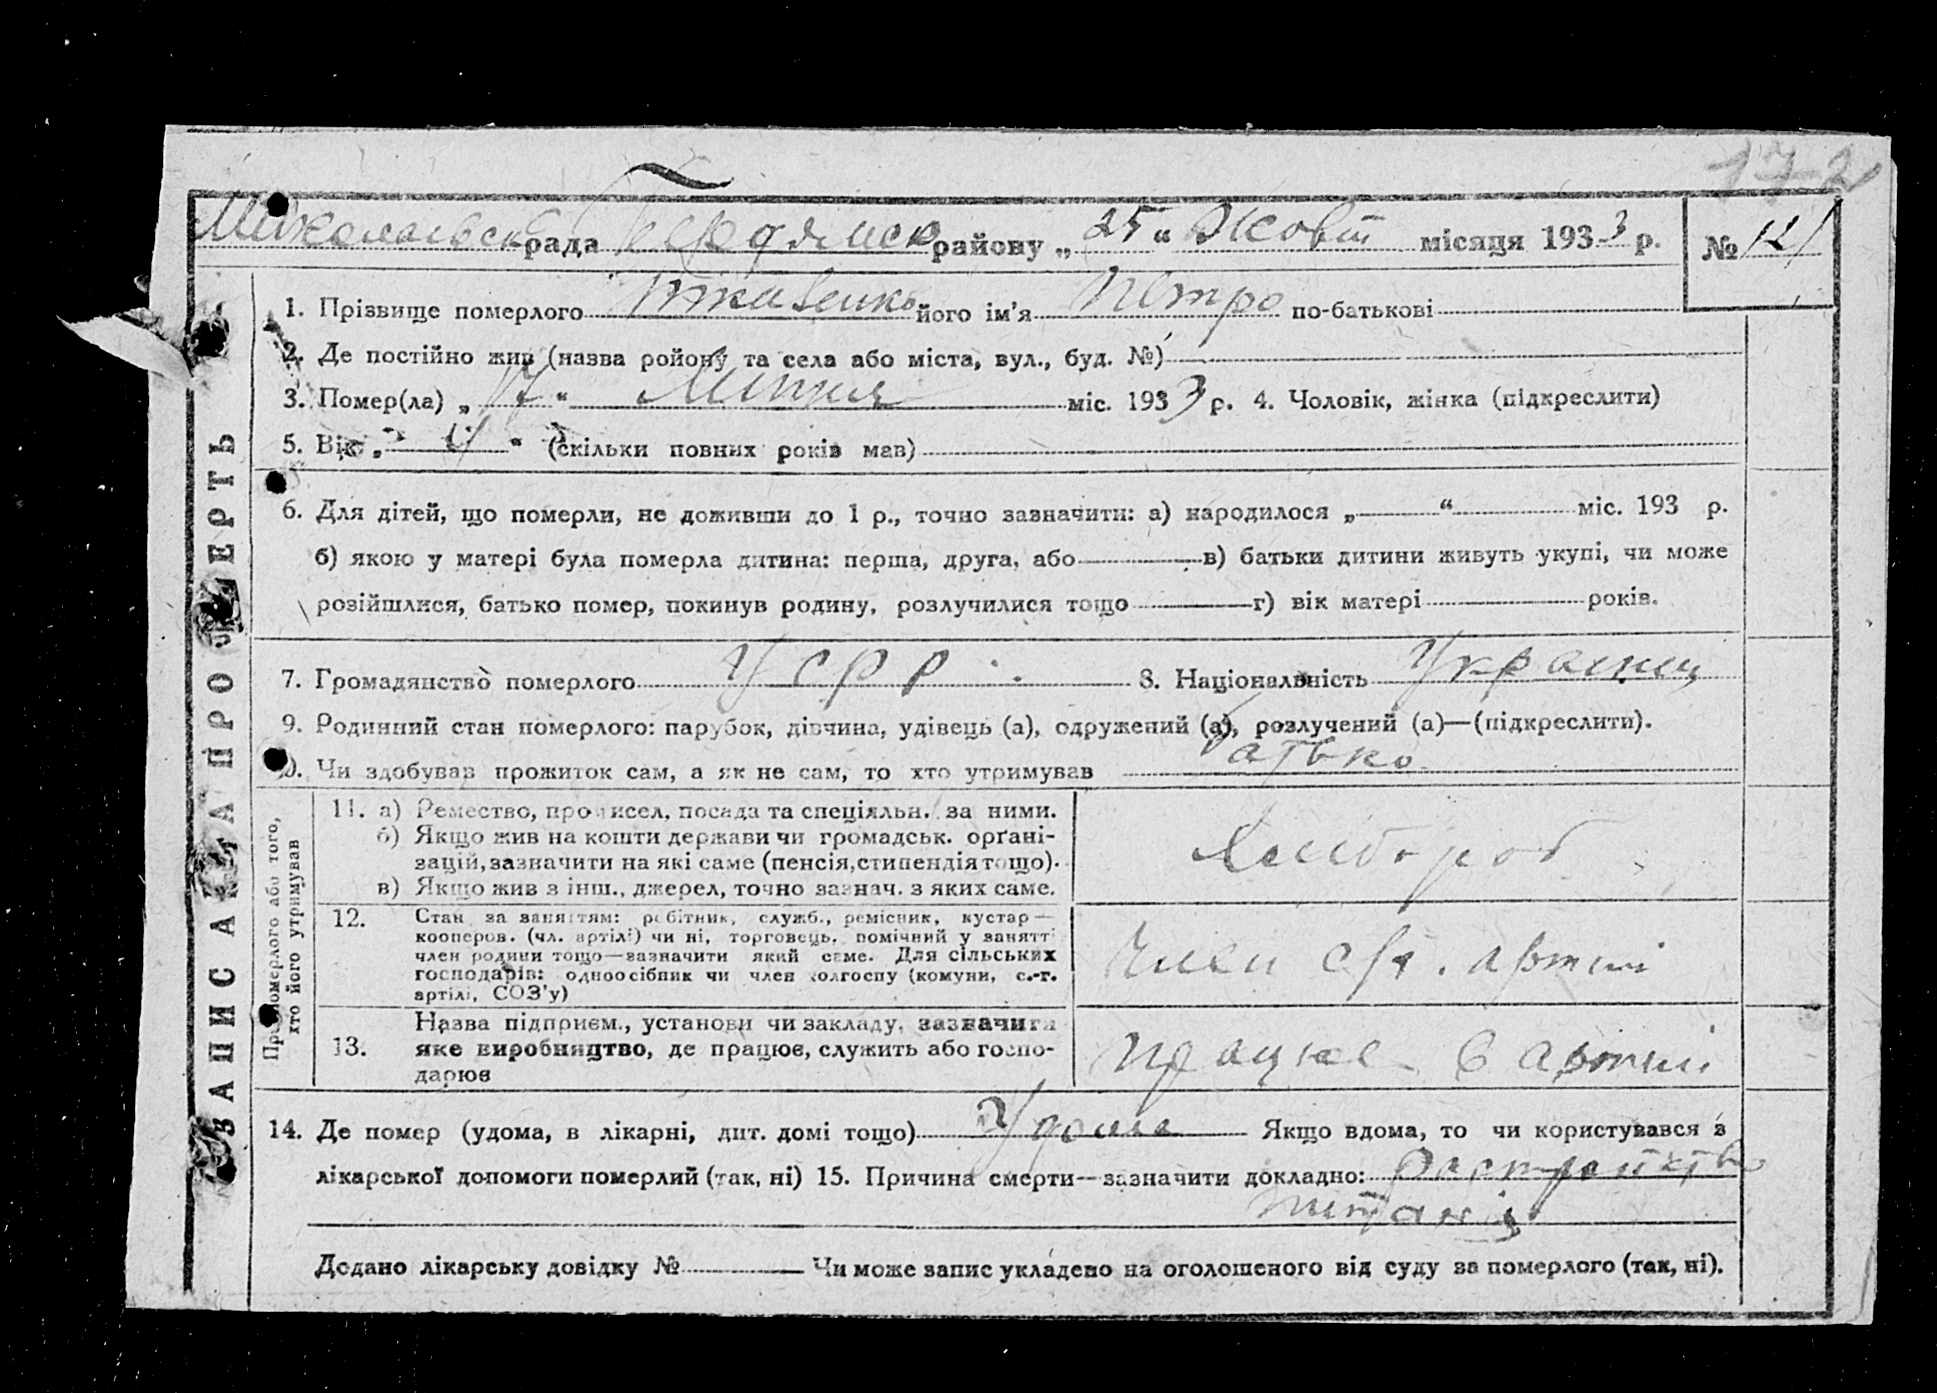 172
Миколаївск рада Бердянск району „ 25 “ Жовт місяця 1933 р. № 121
1. Прізвище померлого Ткаченко його ім'я Петро по-батькові
2. Де постійно жив (назва району та села або міста, вул., буд. №)
3. Помер(ла) „ 17 “ Липня міс. 1933 р. 4. Чоловік, жінка (підкреслити)
5. Вік „ “ (скільки повних років мав)
6. Для дітей, що померли, не доживши до 1 р., точно зазначити: а) народилося „ “ міс. 193 р.
б) якою у матері була померла дитина: перша, друга, або в) батьки дитини живуть укупі, чи може
розійшлися, батько помер, покинув родину, розлучилися тощо г) вік матері років.
7. Громадянство померлого УСРР. 8. Національність Украинц
9. Родинний стан померлого: парубок, дівчина, удівець (а), одружений (а), розлучений (а)—(підкреслити).
10. Чи здобував прожиток сам, а як не сам, то хто утримував батько
ЗАПИС АКТА ПРО СМЕРТЬ
Про померлого або того, хто його утримував
11. а) Ремество, промисел, посада та спеціяльн. за ними.
б) Якщо жив на кошти держави чи громадськ. орґані-
зацій, зазначити на які саме (пенсія, стипендія тощо).
в) Якщо жив з інш., джерел, точно зазнач. з яких саме.
Хлібороб
12. Стан за заняттям: робітник, служб., ремісник, кустар—
кооперов. (чл. артілі) чи ні, торговець, помічний у занятті
член родини тощо—зазначити який саме. Для сільських
господарів: одноосібник чи член колгоспу (комуни, с.-г.
артілі, СОЗ'у)
Член с/г. артілі
13. Назва підприєм., установи чи закладу, зазначити
яке виробництво, де працює, служить або госпо-
дарює
працює в артілі
14. Де помер (удома, в лікарні, дит. домі тощо) Удома Якщо вдома, то чи користувався з
лікарської допомоги померлий (так, ні) 15. Причина смерти—зазначити докладно:
Додано лікарську довідку № Чи може запис укладено на оголошеного від суду за померлого (так, ні).